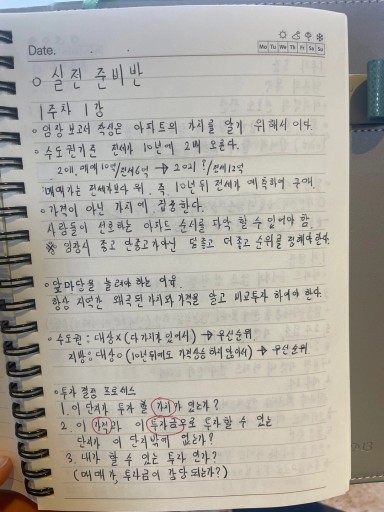 Date.
Mo Tu We Th Fr Sa Su
○ 실전 준비반
1주차 1강
○ 임장 보고서 작성은 아파트의 가치를 알기 위해서 이다.
○ 수도권기준 전세가 10년에 2배 오른다.
2011. 매매 10억/전세6억 → 2021 ?/전세12억
매매가는 전세가보다 위. 즉 10년 뒤 전세가 예측하여 구매.
○ 가격이 아닌 가치에 집중한다.
사람들이 선호하는 아파트 순서를 파악 할 수 있어야 함.
※ 임장시 좋고 안좋고가아닌 덜좋고 더좋고 순위를 정해야한다.
○ 앞마당을 늘려야 하는 이유.
항상 지역간 왜곡된 가치와 가격을 알고 비교투자 하여야 한다.
○ 수도권 : 대상X (다 가치가 있어서) → 우선순위
지방 : 대상○ (10년뒤에도 가격상승 하지 않아서) → 우선순위
○ 투자 결정 프로세스
1. 이 단지가 투자 할 가치가 있는가?
2. 이 가격과 이 투자금으로 투자할 수 있는
단지가 이 단지밖에 없는가?
3. 내가 할 수 있는 투자 인가?
(매매가, 투자금이 감당 되는가?)